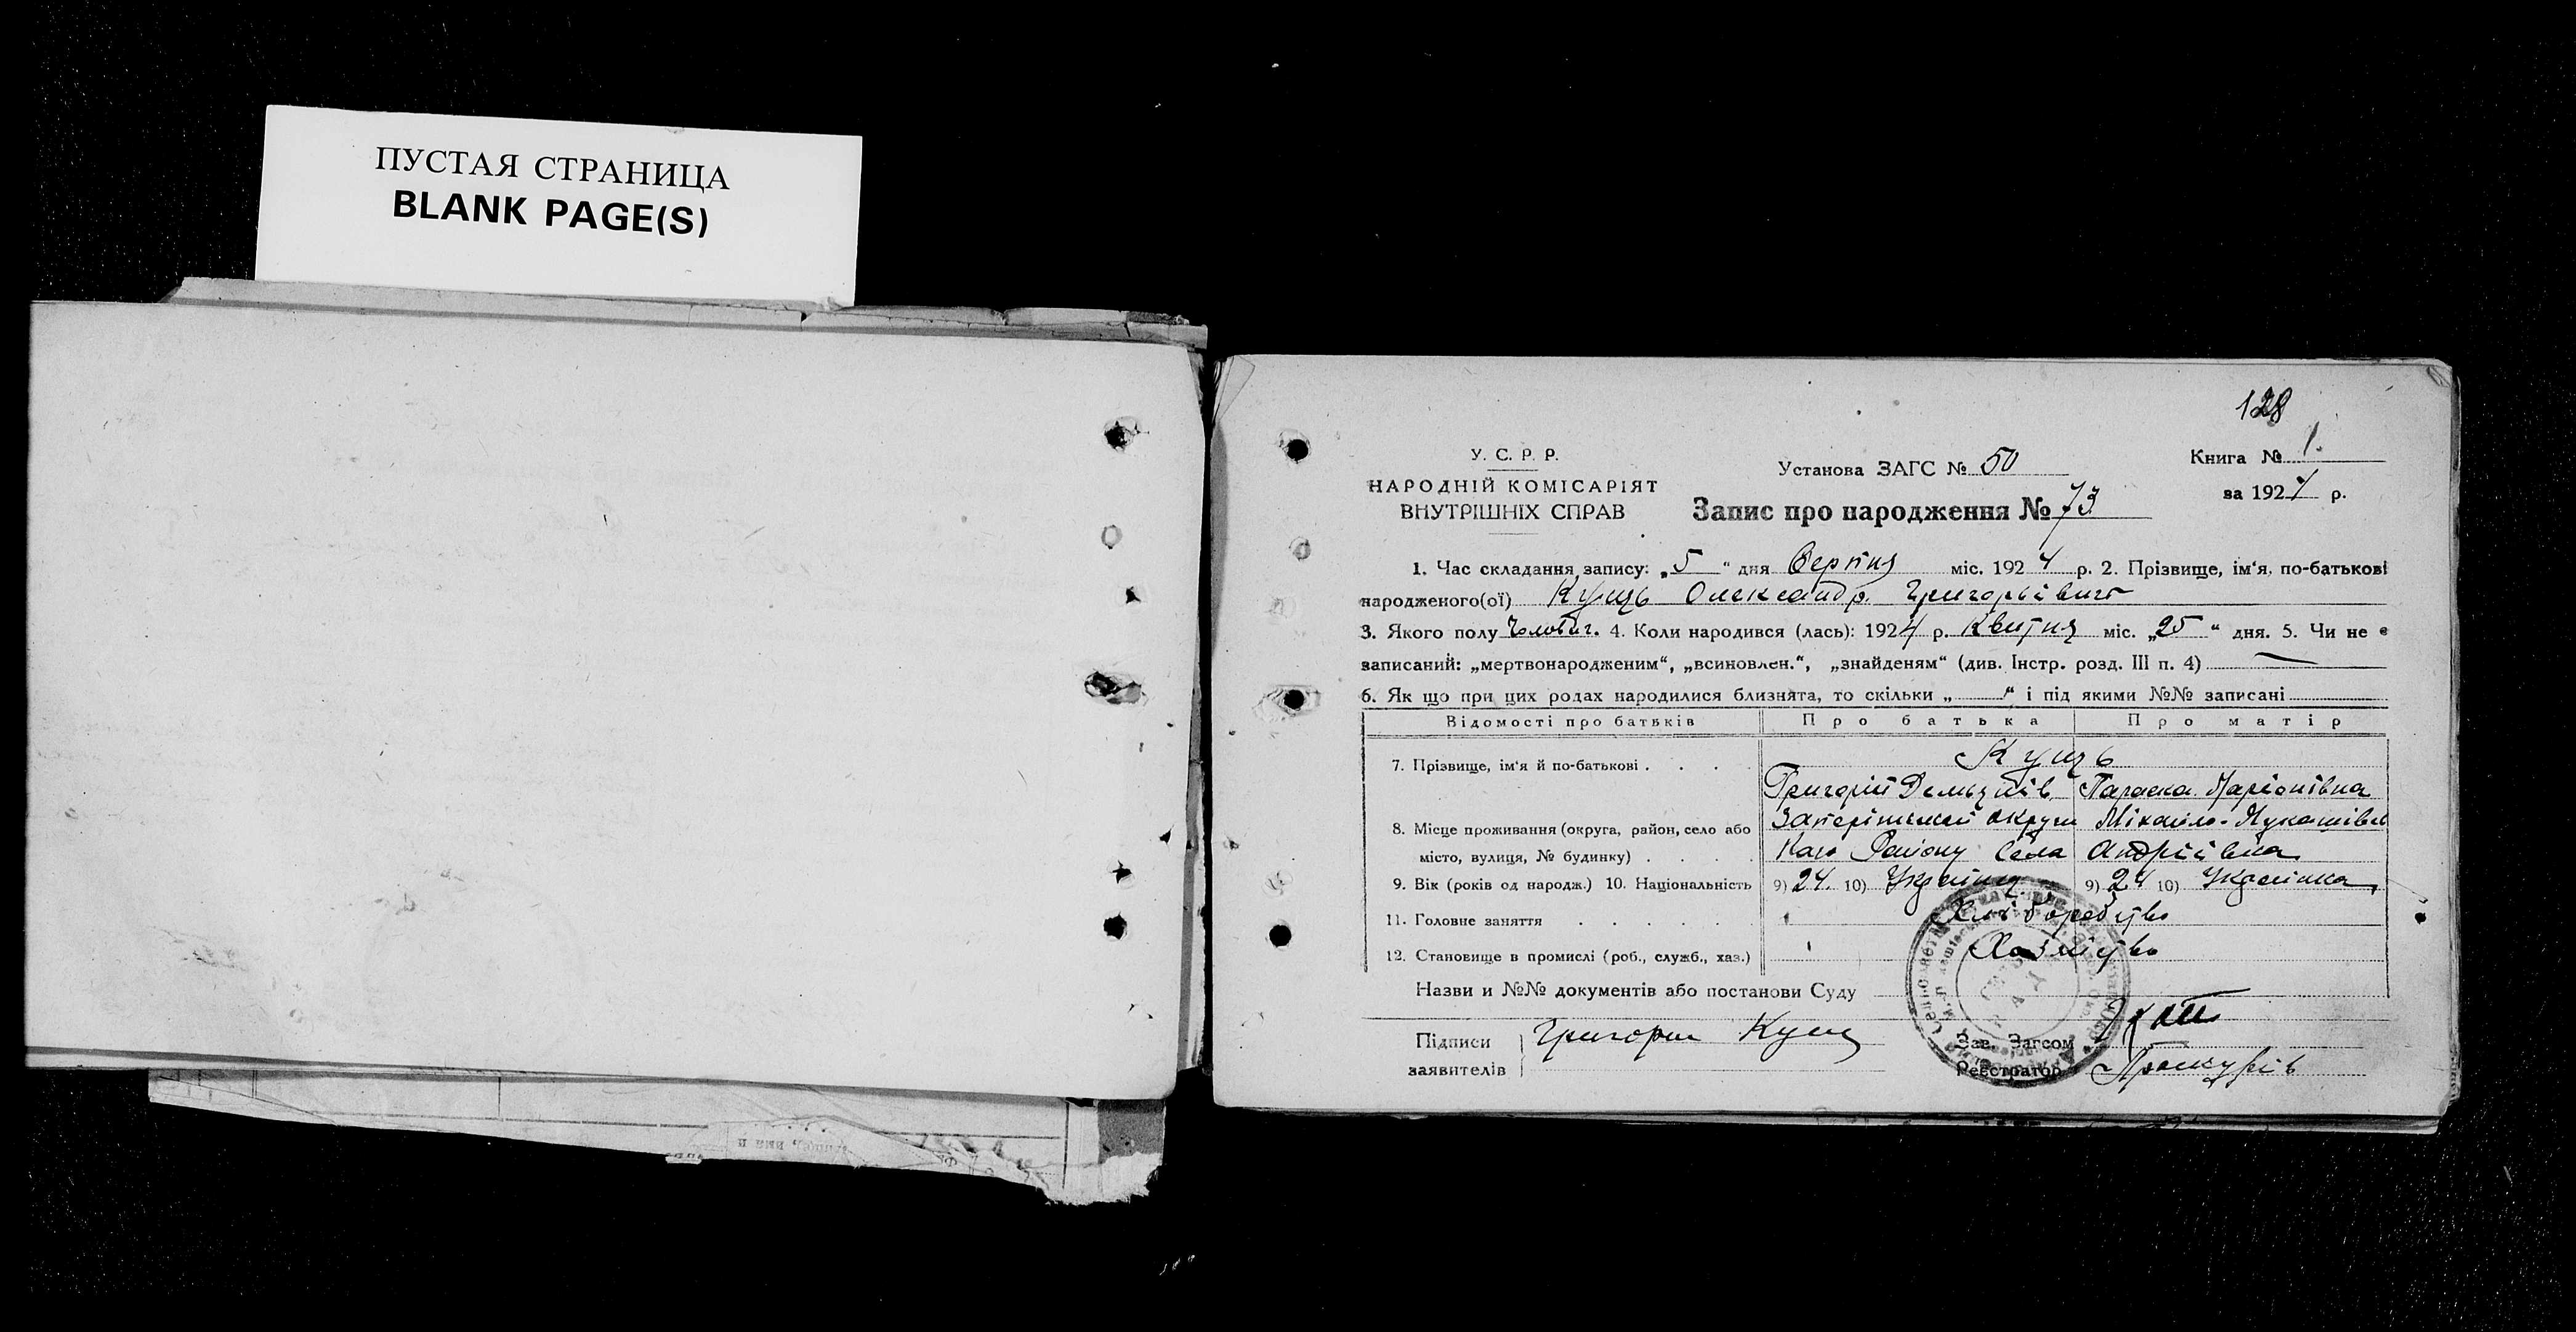 ПУСТАЯ СТРАНИЦА
BLANK PAGE(S)
128
У. С. Р. Р.
НАРОДНІЙ КОМІСАРІЯТ
ВНУТРІШНІХ СПРАВ
Установа ЗАГС № 50
Запис про народження № 73
Книга № 1.
за 1924 р.
1. Час складання запису: „5“ дня Серпня міс. 1924 р. 2. Прізвище, ім‘я, по-батькові
народженого(ої) Куць Олександр Григорьівич
3. Якого полу Чоловіч. 4. Коли народився (лась): 1924 р. Квітня міс. „25“ дня. 5. Чи не є
записаний: „мертвонародженим“, „всиновлен.“, „знайденям“ (див. Інстр. розд. III п. 4) —
6. Як що при цих родах народилися близнята, то скільки „ “ і під якими №№ записані
Відомості про батьків Про батька Про матір
7. Прізвище, ім‘я й по-батькові . . . . Куць
Григорій Параска
8. Місце проживання (округа, район, село або Запоріжської округи Михайло-Лукашівсь
місто, вулиця, № будинку) . . . . Кого Району Села Андріівка
9. Вік (років од народж.) 10. Національність 9) 24. 10) Українец 9) 24 10) Українка
11. Головне заняття . . . . . . Хліборобство
12. Становище в промислі (роб., служб., хаз.) Хазяйство
Назви и №№ документів або постанови Суду
Підписи Григорий Куц
заявителів
Зав. Загсом
Реєстратор